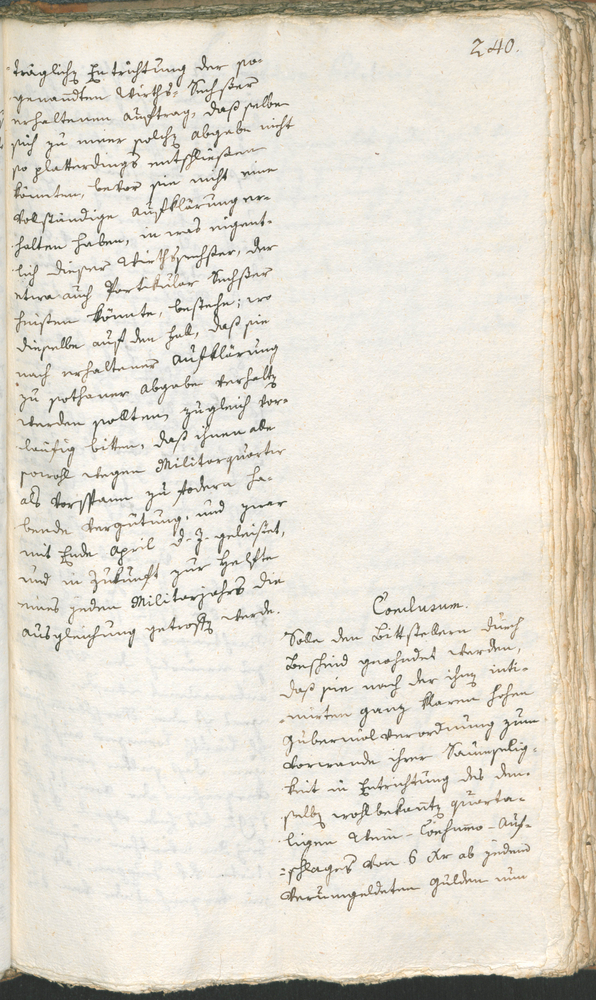 240.
träglich Entrichtung der so-
genannten Wirths-Sechster
erhaltenen Auftrag, daß selbe
sich zu einer solch Abgabe nicht
so platterdings entschließen
könnten, bevor sie nicht eine
vollständige Aufklärung er-
halten haben, in was eigent-
lich dieser Wirthssechster, der
etwa auch Partikular Sechster
heißen könnte, bestehe; wo
dieselbe auf den Fall, daß sie
nach erhaltener Aufklärung
zu sothaner Abgabe verhalt
werden sollten, zugleich vor-
läufig bitten, daß ihnen alle
sowohl wegen Militarquartir
als Vorspann zu fodern ha-
bende Vergütung, und zwar
mit Ende April d. J. geleistet,
und in Zukunft zur Helfte
eines jeden Militarjahrs die
Ausgleichung getroff werde.
Conclusum.
Solle den Bittstellern durch
Bescheid geahndet werden,
daß sie nach der ihn inti-
mirten ganz klaren hohen
Gubernialverordnung zum
Vorwande ihrer Saumselig-
keit in Entrichtung des den-
selb wohlbekannt quarta-
ligen Wein-Consumo-Auf-
schlages von 6 Xr ab jedem
verumgeldeten Gulden nun